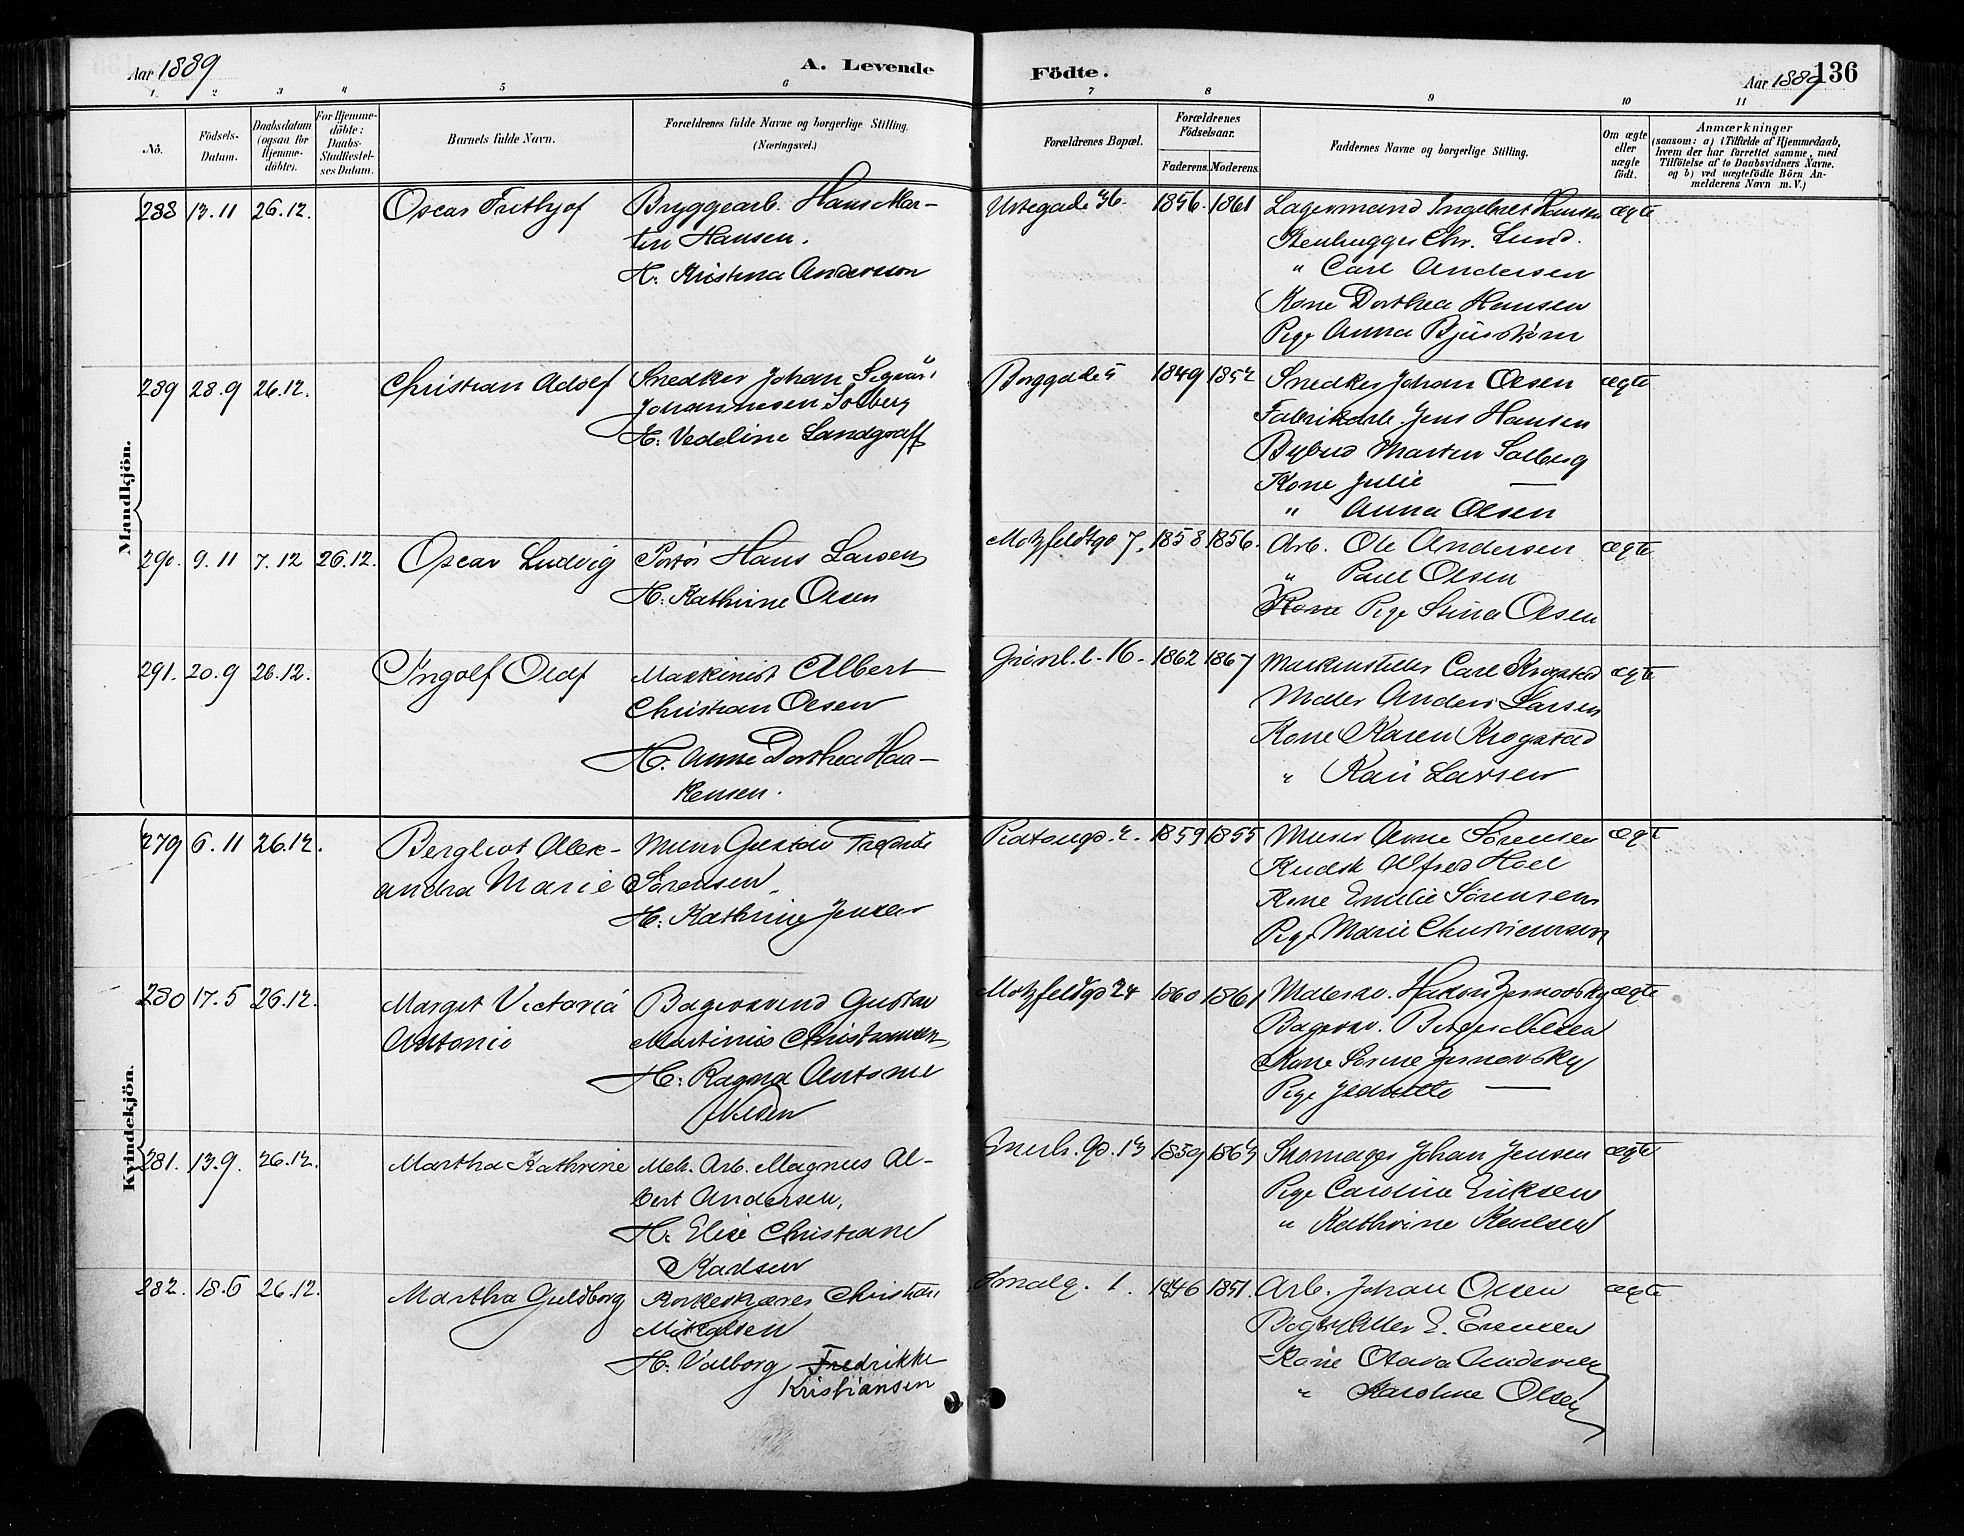 Aar 1889
A. Levende
Födte.
Aar 1889
136
1. 2 3 4 5 6 7 8 9 10 11
No.
Födsels-
Datum.
Daabsdatum
(ogsaa for
Hjemme-
döbte).
For Hjemme-
döbte:
Daabs-
Stadfæstel-
ses Datum.
Barnets fulde Navn.
Forældrenes fulde Navne og borgerlige Stilling.
(Næringsvei.)
Forældrenes Bopæl.
Forældrenes
Födselsaar.
Faderens. Moderens.
Faddernes Navne og borgerlige Stilling.
Om ægte
eller
uægte
födt.
Anmærkninger
(saasom: a) i Tilfælde af Hjemmedaab,
hvem der har forrettet samme, med
Tilföielse af to Daabsvidners Navne.
og b) ved uægtefödte Börn An-
melderens Navn m. V.)
Mandkjön.
288 13.11 26.12.
Oscar Frithjof
Bryggearb. Hans Mar-
tin Hansen.
H. Kristina Andersson
Urtegade 36.
1856. 1861
Lagermand Ingebret Hansen
Stenhugger Chr. Lund.
" Carl Andersen
Kone Dorthea Hansen
Pige Anna
ægte
289 28.9 26.12.
Christian Adolf
Snedker Johan
Johannesen Solberg
H. Vedeline Landgraff
Borggade 5
1849 1852
Snedker Johan Olsen
Fabrikarb. Jens Hansen
Bybud Martin Solberg
Kone Julie —
" Anna Olsen
ægte
290. 9.11 7.12 26.12.
Oscar Ludvig
Portør Hans Larsen
H. Kathrine Olsen
Motzfeldtgd 7.
1858 1856.
Arb. Ole Andersen
" Paul Olsen
Kone Pige Stina Olsen
ægte
291. 20.9 26.12.
Ingolf Olaf
Maskinist Albert
Christian Olsen
H. Anne Dorthea Haa-
kensen.
Grønl. l. 16.
1862 1867
Carl Krogstad
Maler Anders Larsen
Kone Karen Krogstad
" Kari Larsen
ægte
Kvindekjön.
279 6.11 26.12.
Bergliot Alex-
andra Marie
Murer Gustav Fredrik
Sørensen.
H. Kathrine Jensen
Platougd. 2.
1859 1855
Murer Sørensen
Kudsk Alfred Hoel
Kone Emilie Sørensen
Pige Marie Christiansen
ægte
280 17.5 26.12.
Margit Victoria
Antonie
Bagersvend Gustav
Martinius Christiansen
H. Ragna Antonie
Nilsen
Motzfeldgd 24
1860 1861
Malersv. Hakon
Bagersv. Birger Nilsen
Kone Sørine
Pige —
ægte
281. 13.9. 26.12.
Martha Kathrine
Mek. Arb. Magnus Al-
bert Andersen,
H. Elise Christiane
Karlsen
13
1859
Skomager Johan Jensen
Pige Caroline Eriksen
" Kathrine Karlsen
ægte
282. 18.6 26.12.
Martha Guldborg
Christian
Mikalsen
H. Valborg Fredrikke
Kristiansen
Smalg. 1.
1846 1851.
Arb. Johan Olsen
E. Evensen
Kone
" Karoline Olsen
ægte